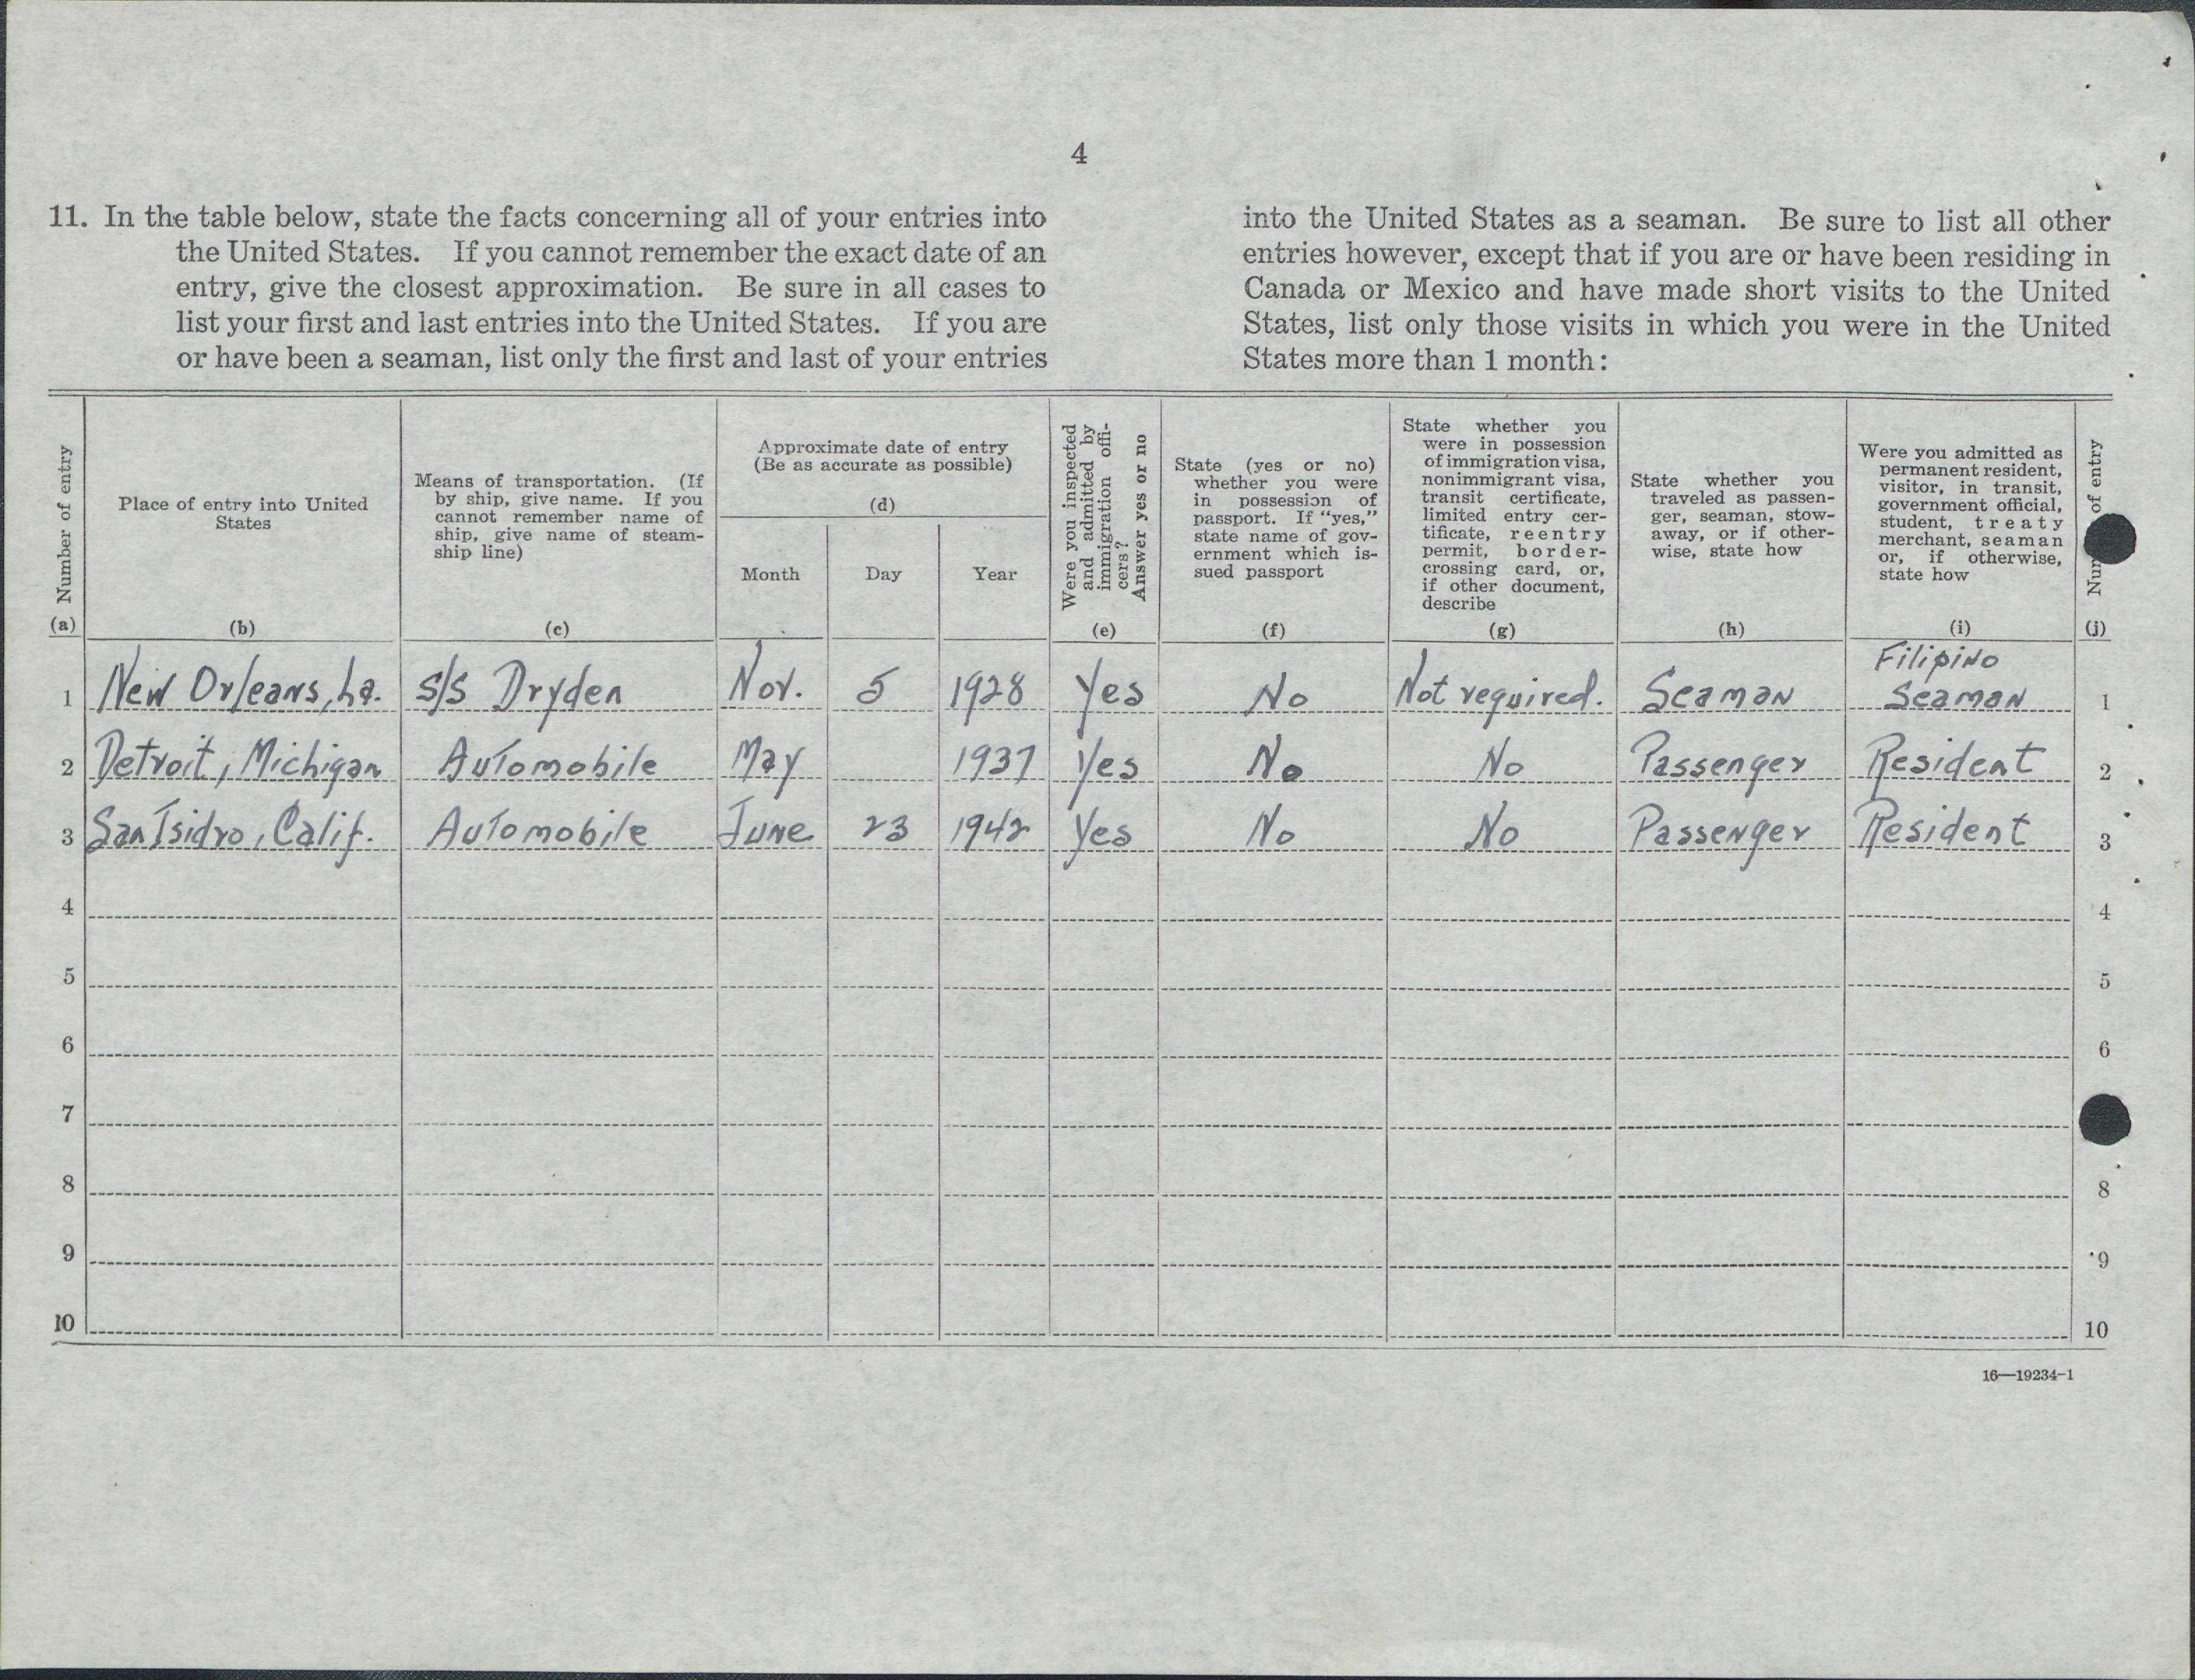 4
11. In the table below, state the facts concerning all of your entries into
the United States. If you cannot remember the exact date of an
entry, give the closest approximation. Be sure in all cases to
list your first and last entries into the United States. If you are
or have been a seaman, list only the first and last of your entries
into the United States as a seaman. Be sure to list all other
entries however, except that if you are or have been residing in
Canada or Mexico and have made short visits to the United
States, list only those visits in which you were in the United
States more than 1 month:
Number of entry
(a)
Place of entry into United
States
(b)
Means of transportation. (If
by ship, give name. If you
cannot remember name of
ship, give name of steam-
ship line)
(c)
Approximate date of entry
(Be as accurate as possible)
(d)
Month Day Year
Were you inspected
and admitted by
immigration offi-
cers?
Answer yes or no
(e)
State (yes or no)
whether you were
in possession of
passport. If "yes,"
state name of gov-
ernment which is-
sued passport
(f)
State whether you
were in possession
of immigration visa,
nonimmigrant visa,
transit certificate,
limited entry cer-
tificate, reentry
permit, border-
crossing card, or,
if other document,
describe
(g)
State whether you
traveled as passen-
ger, seaman, stow-
away, or if other-
wise, state how
(h)
Were you admitted as
permanent resident,
visitor, in transit,
government official,
student, treaty
merchant, seaman
or, if otherwise,
state how
(i)
of entry
(j)
Filipino
1 New Orleans, La. S/S Dryden Nov. 5 1928 Yes No Not required. Seaman Seaman 1
2 Detroit, Michigan Automobile May 1937 Yes No No Passenger Resident 2
3 San Isidro, Calif. Automobile June 23 1942 Yes No No Passenger Resident 3
4 4
5 5
6 6
7
8 8
9 9
10 10
16—19234-1